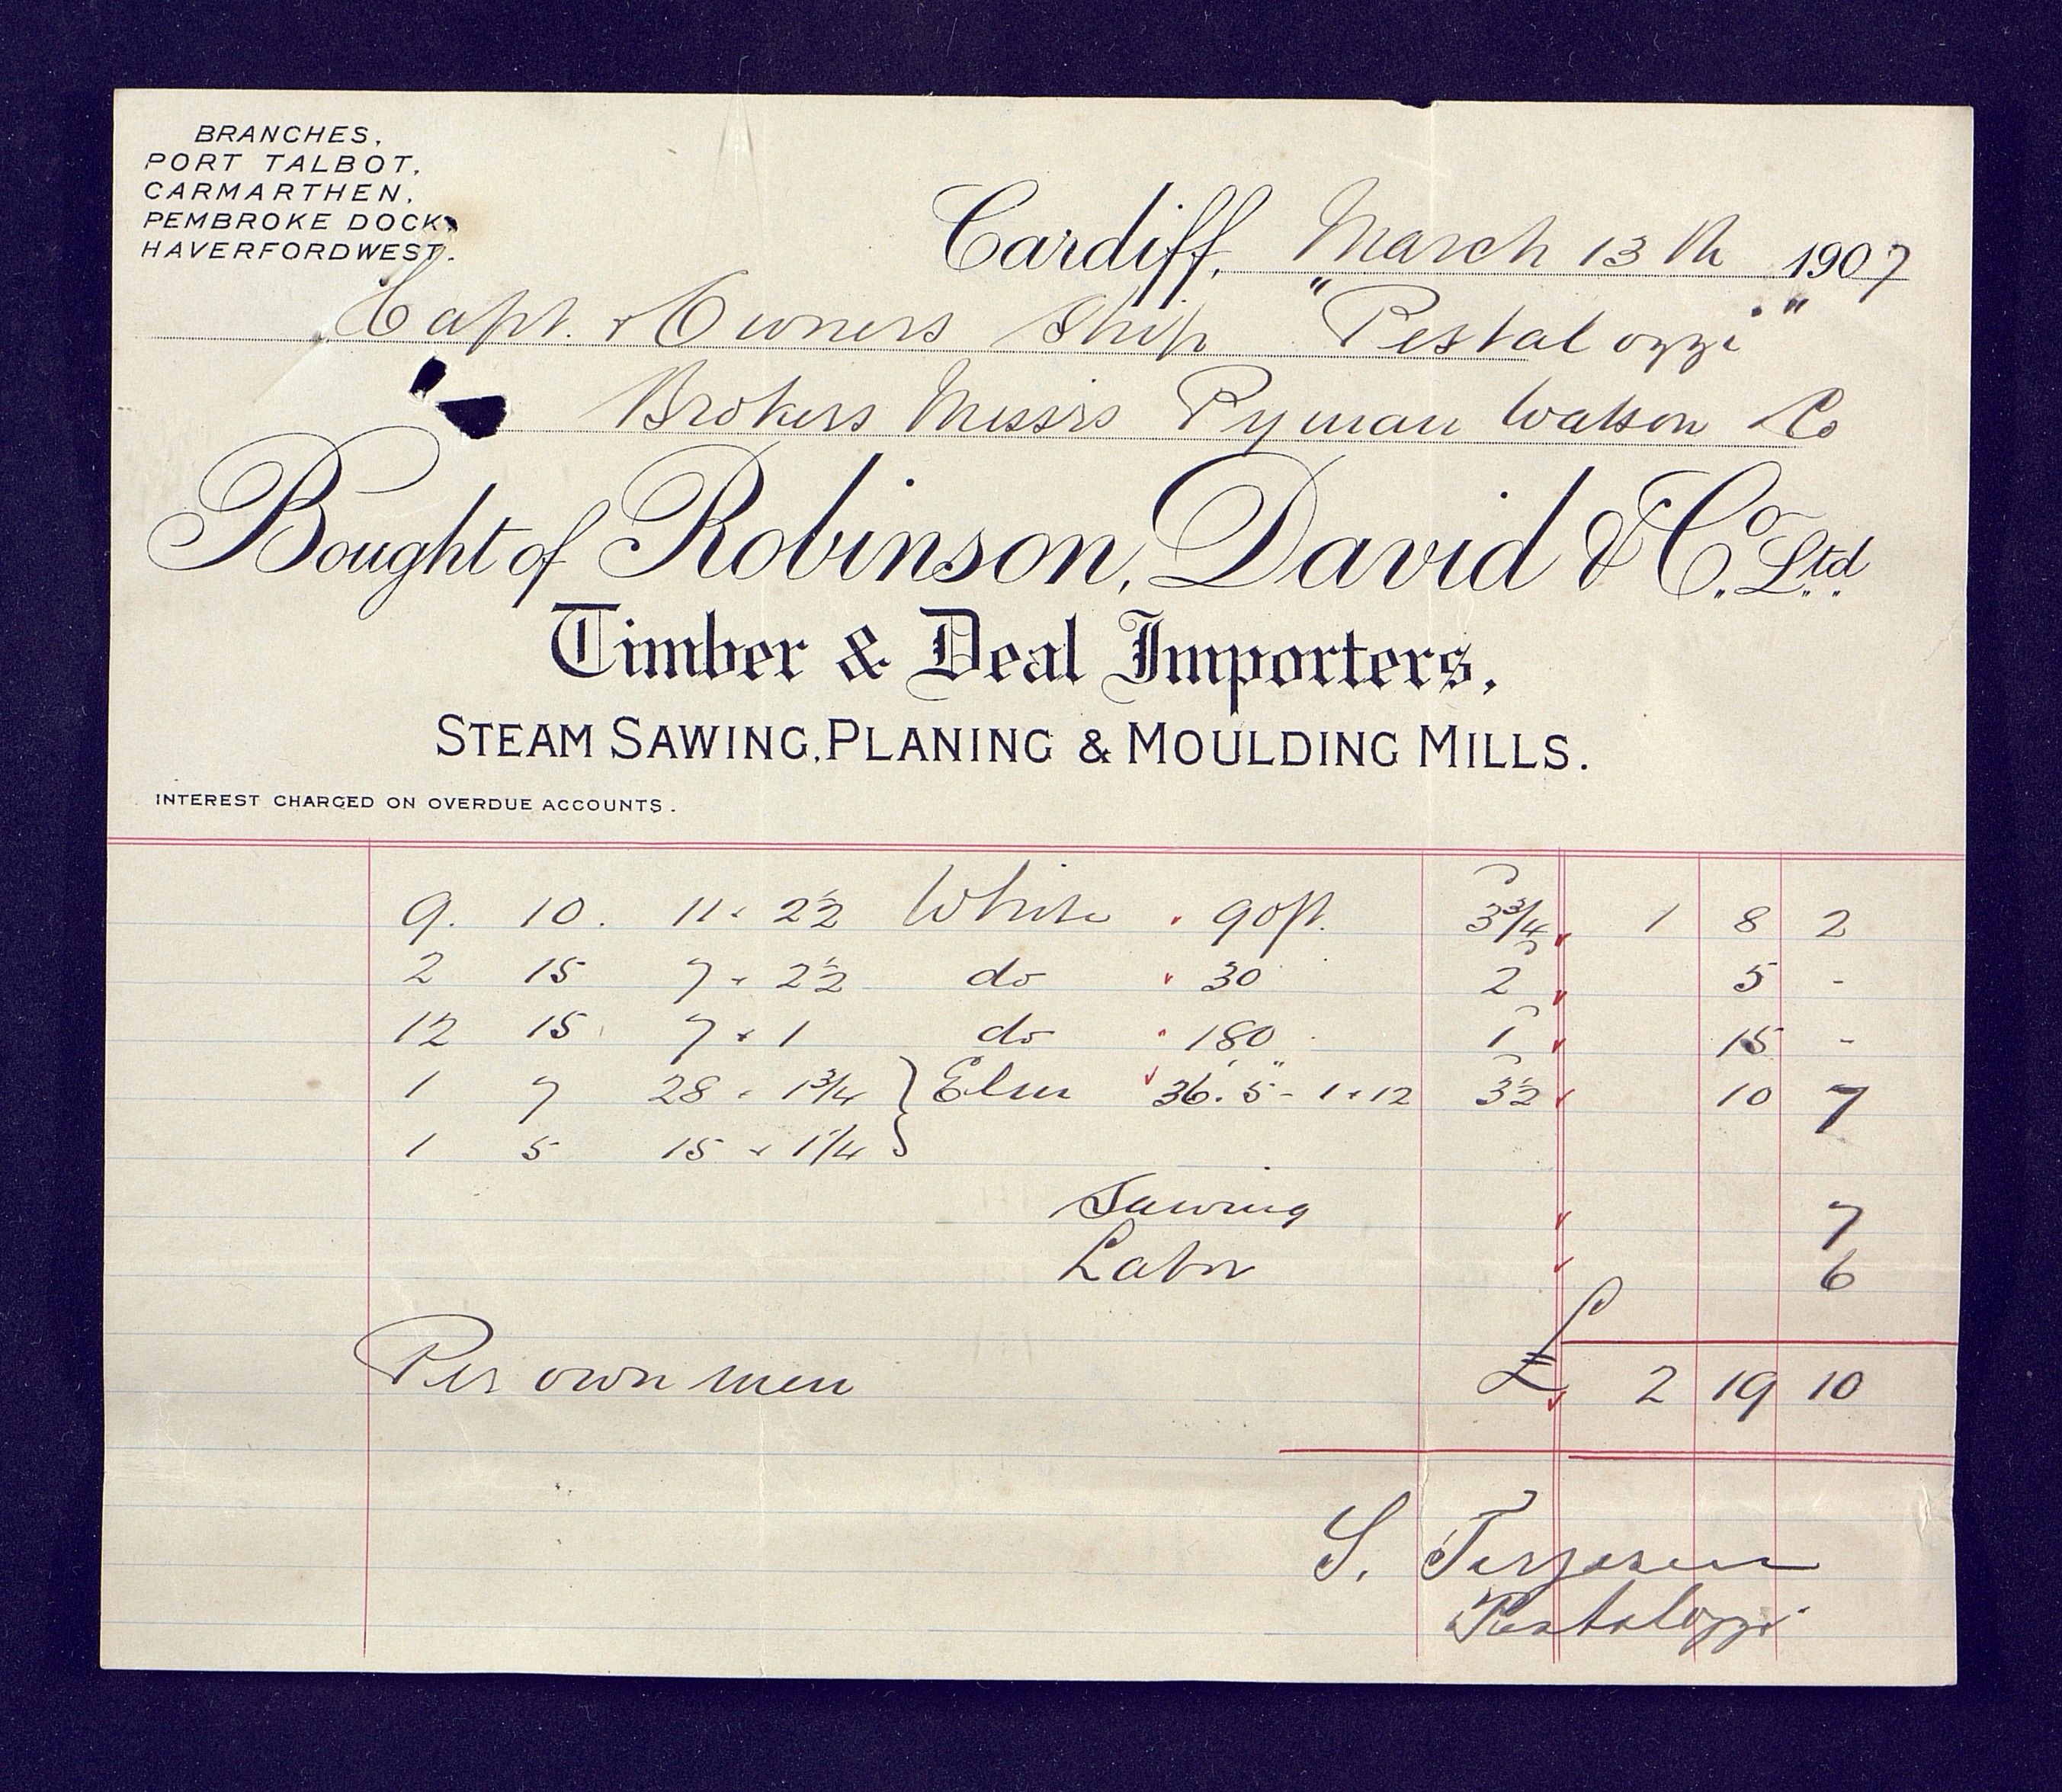 BRANCHES,
PORT TALBOT,
CARMARTHEN,
PEMBROKE DOCK,
HAVERFORDWEST.
Cardiff, March 13th 1907
Capt. & Owners Ship "Pestalozzi"
Brokers Messrs Pyman Watson & Co
Bought of Robinson, David & Co. Ltd.
Timber & Deal Importers,
STEAM SAWING, PLANING & MOULDING MILLS.
INTEREST CHARGED ON OVERDUE ACCOUNTS.
9. 10. 11 x 2½ White 90ft. 3¾ 1 8 2
2 15 7 x 2½ do 30 2 5 -
12 15 7 x 1 do 180 1 15 -
1 7 28 x 1¾ } Elm 36' 5" - 1 x 12 3½ 10 7
1 5 15 x 1¼
Sawing 7
Labor 6
Per own men £ 2 19 10
S. Terjesen
Pestalozzi